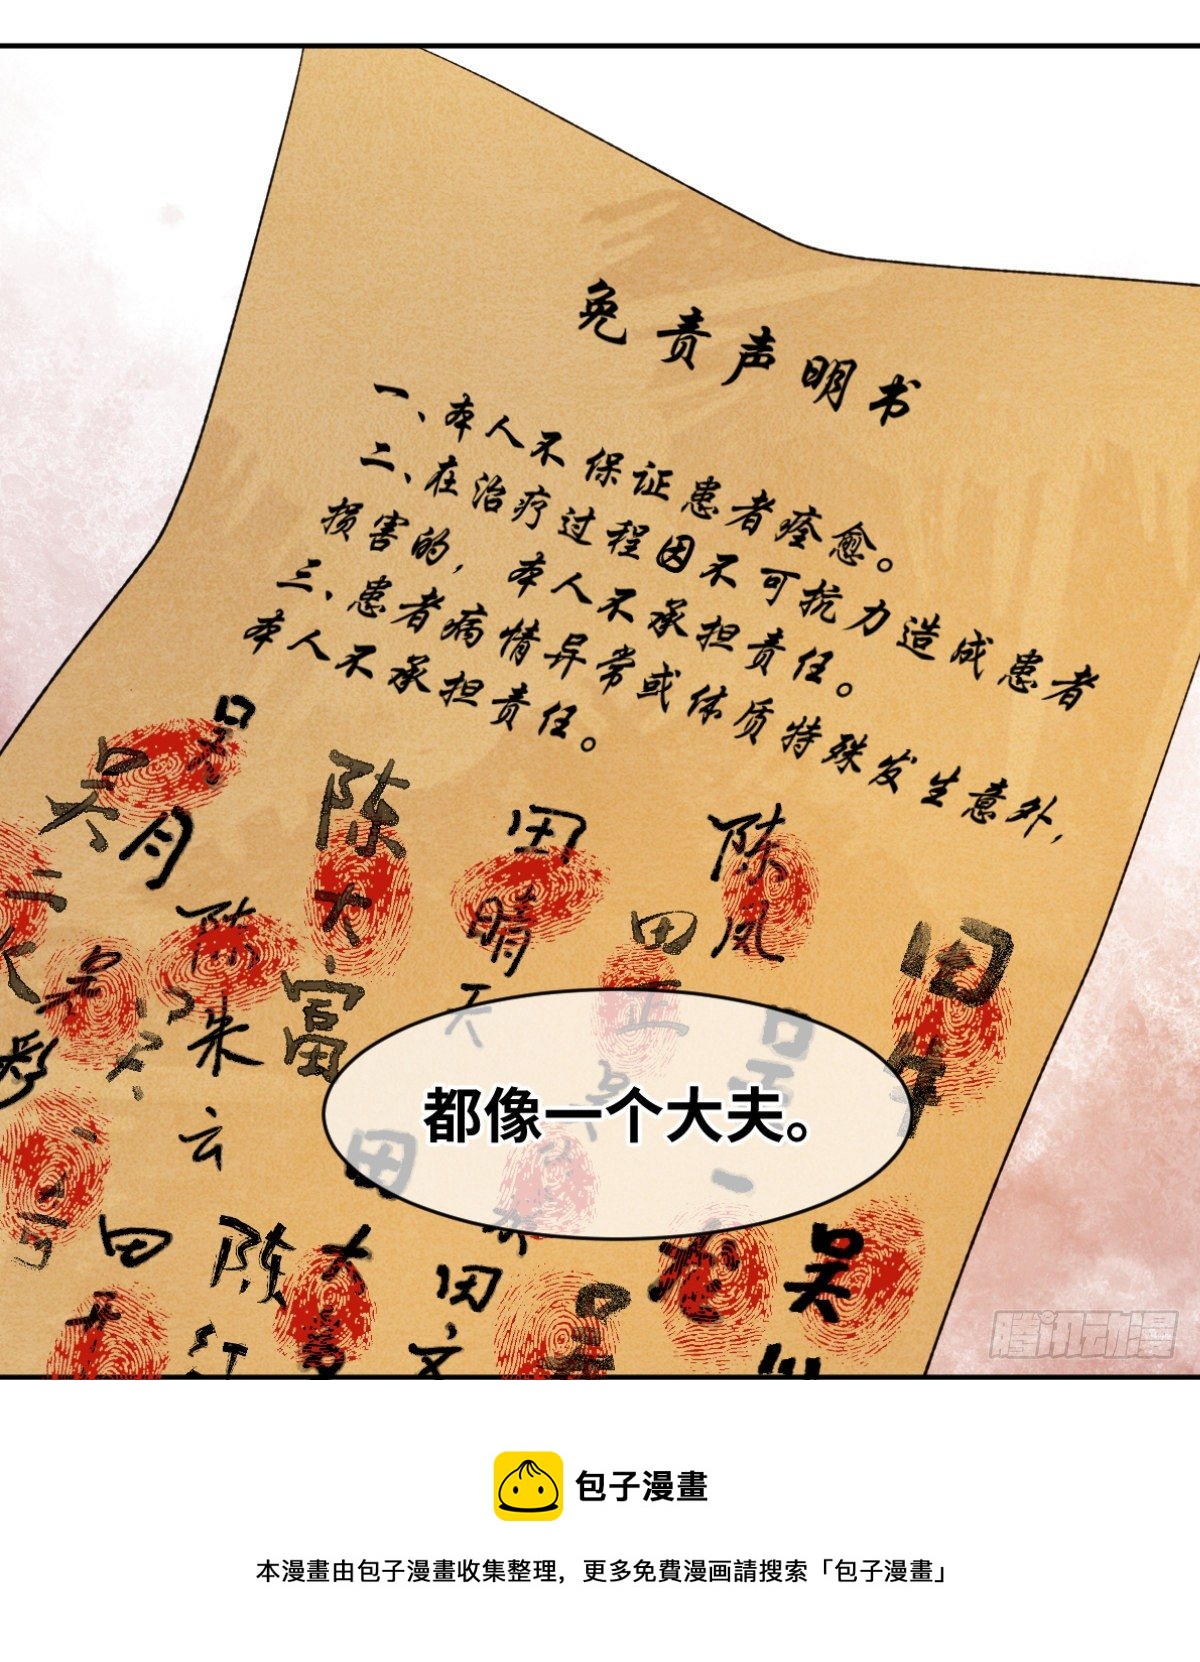 免责声明书
一、本人不保证患者痊愈。
二、在治疗过程因不可抗力造成患者
损害的，本人不承担责任。
三、患者病情异常或体质特殊发生意外，
本人不承担责任。
吴月
陈大富
田晴天
陈凤
陈朱云
田正
田生
都像一个大夫。
陈红
田文
吴
腾讯动漫
包子漫畫
本漫畫由包子漫畫收集整理，更多免費漫画請搜索「包子漫畫」